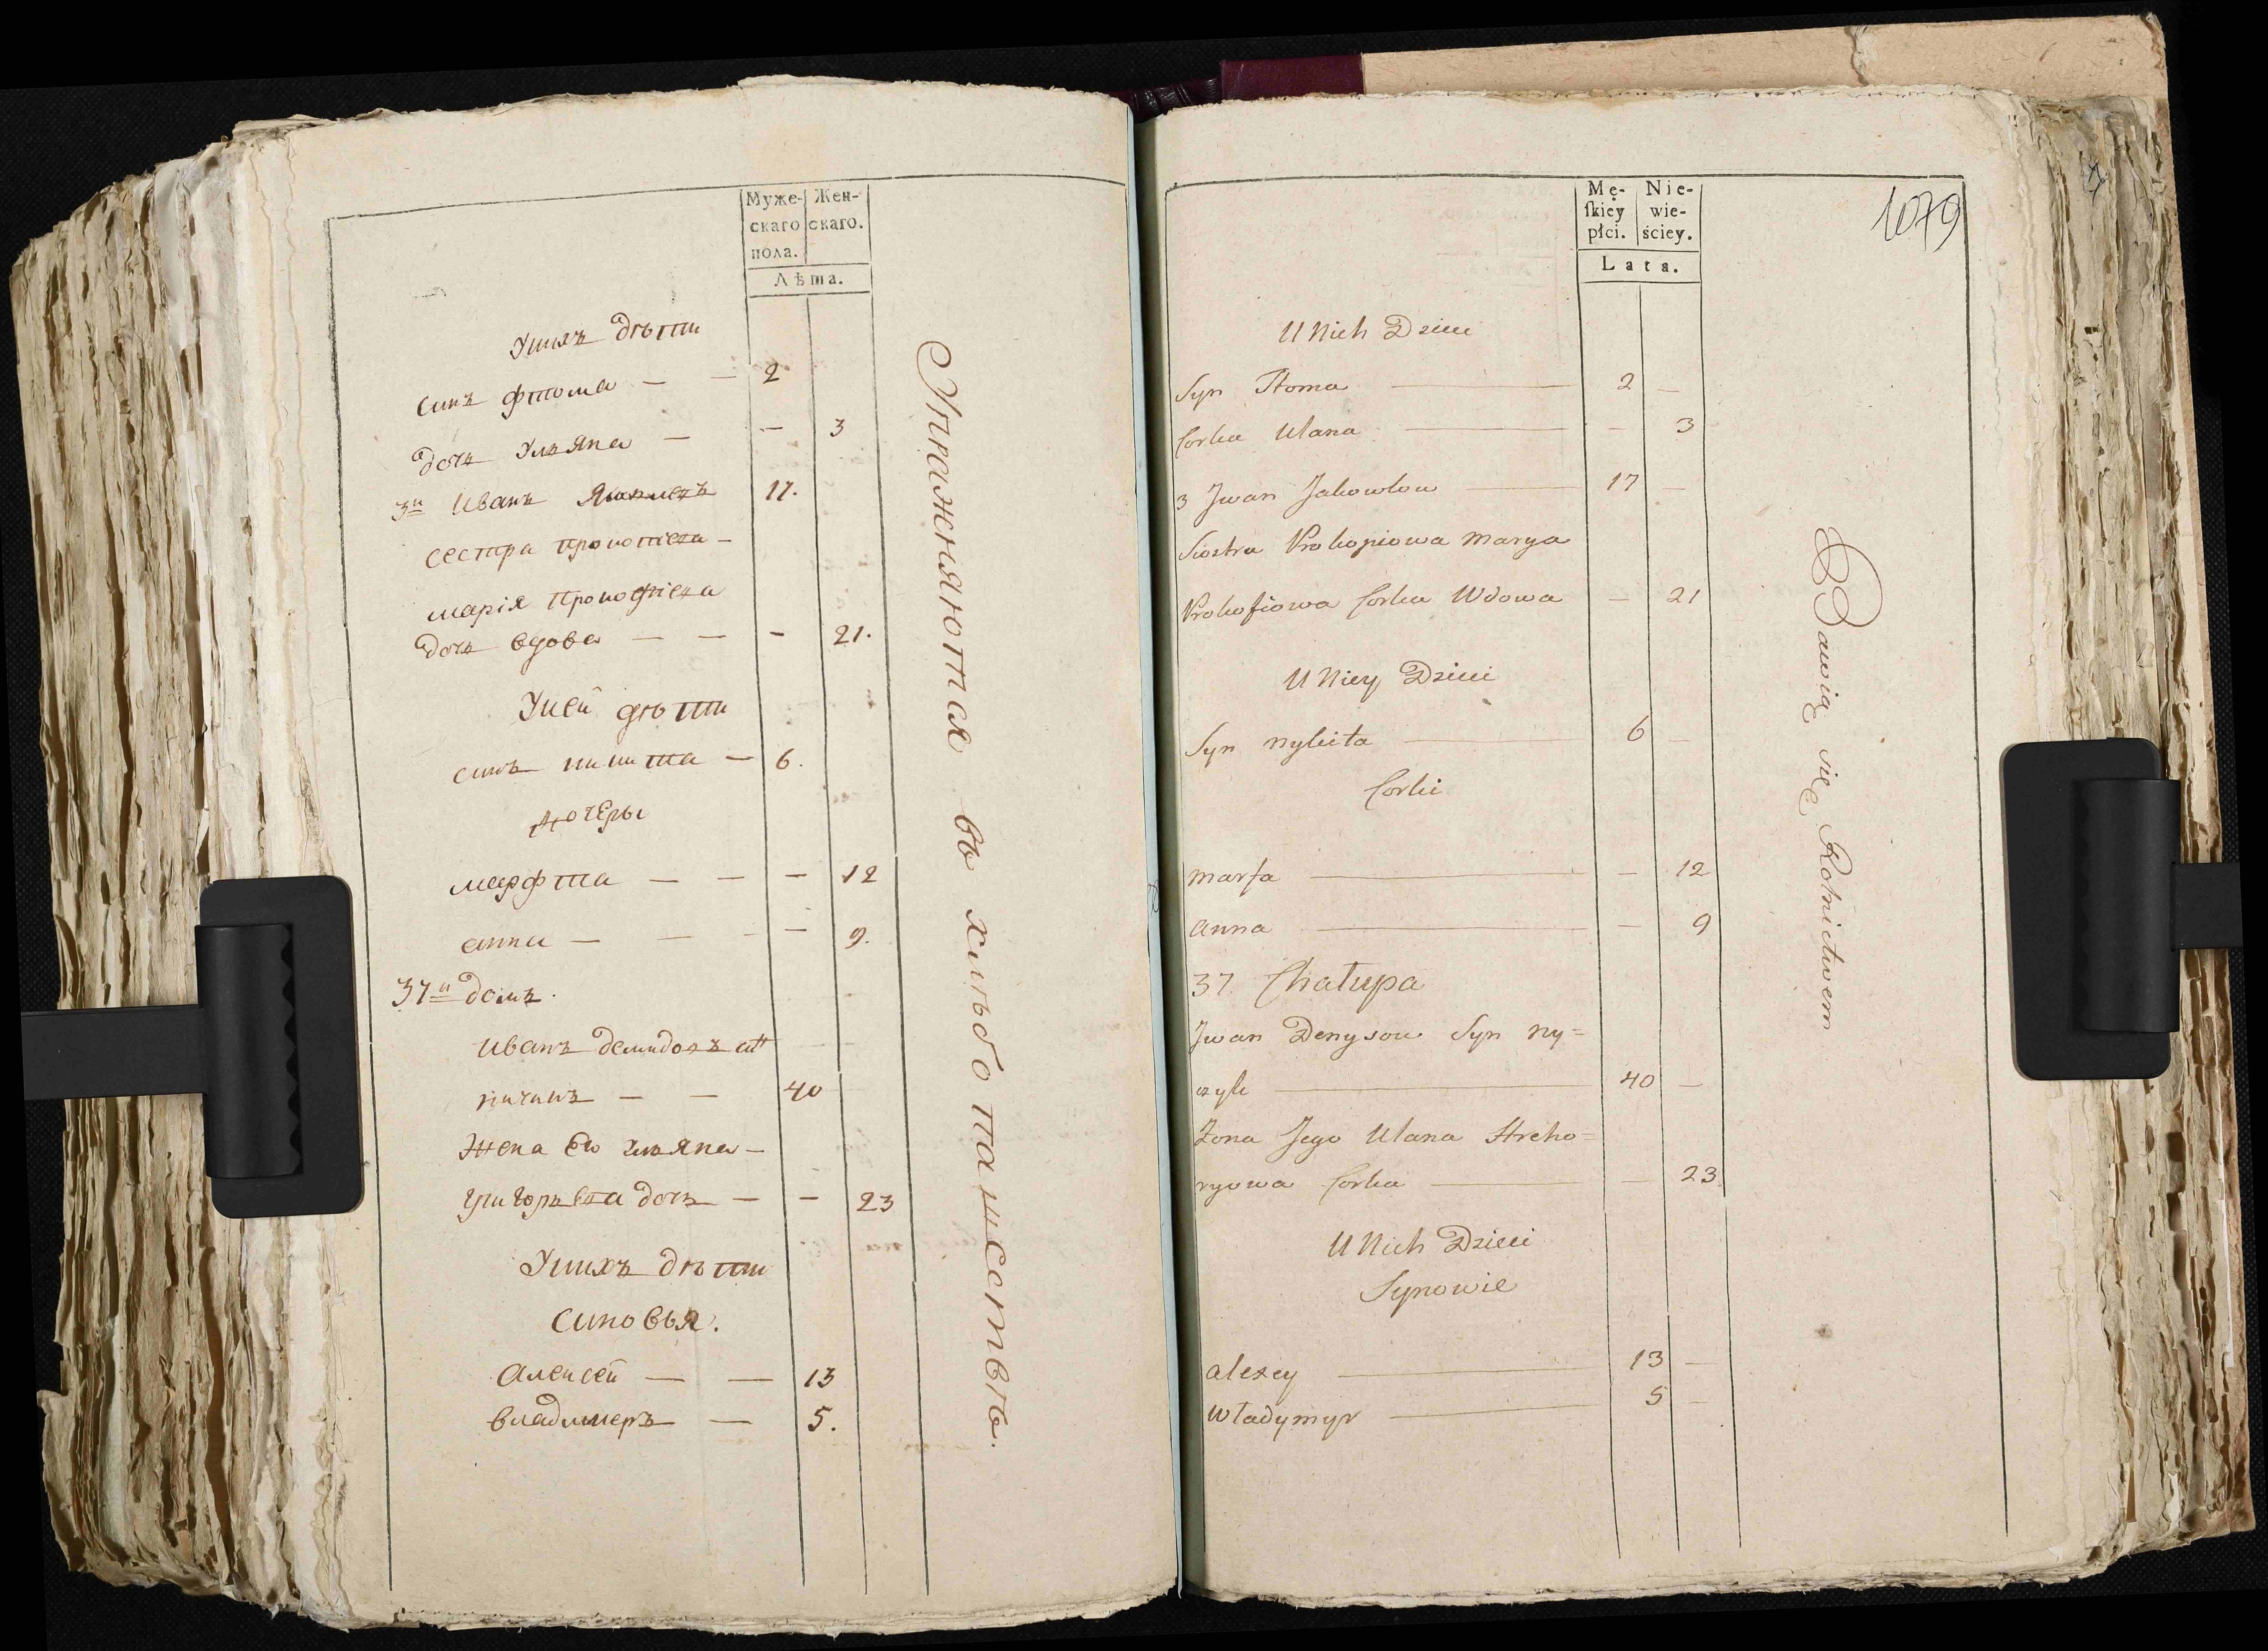 Муже- Жен-
скаго скаго.
пола.
Лѣта.
Унихъ дѣти
синъ фтома — — 2
дочь Ульяна — — 3
3й Иванъ 17.
сестра прокопіева —
марія Прокофіева
дочь вдова — — — 21.
Уней дѣти
синъ никита — 6.
дочеры
марфта — — — 12
анна — — — 9.
37й домъ.
Иванъ демидовъ ан
ничинъ — — 40
Жена Ево ульяна —
григорьева дочь — — 23
Унихъ дѣти
синовья.
Алексей — — 13
владимеръ — 5.
Упражняются въ хлѣбопашествѣ.
1079
Mę- Nie-
skiey wie-
płci. ściey.
Lata.
U Nich Dzieci
Syn Ftoma — 2 —
Corka Ulana — — 3
3 Jwan Jakowlow — 17 —
Siostra Prokopiowa Marya
Prokofiowa Corka Wdowa — 21
U Niey Dzieci
Syn Nykita — 6 —
Corki
Marfa — — 12
Anna — — 9
37. Chałupa
Jwan Denysow Syn ny=
czyk — 40 —
Żona Jego Ulana Hreho=
ryowa Corka — — 23
U Nich Dzieci
Synowie
Alexey — 13 —
Władymyr — 5 —
Bawią się Rolnictwem